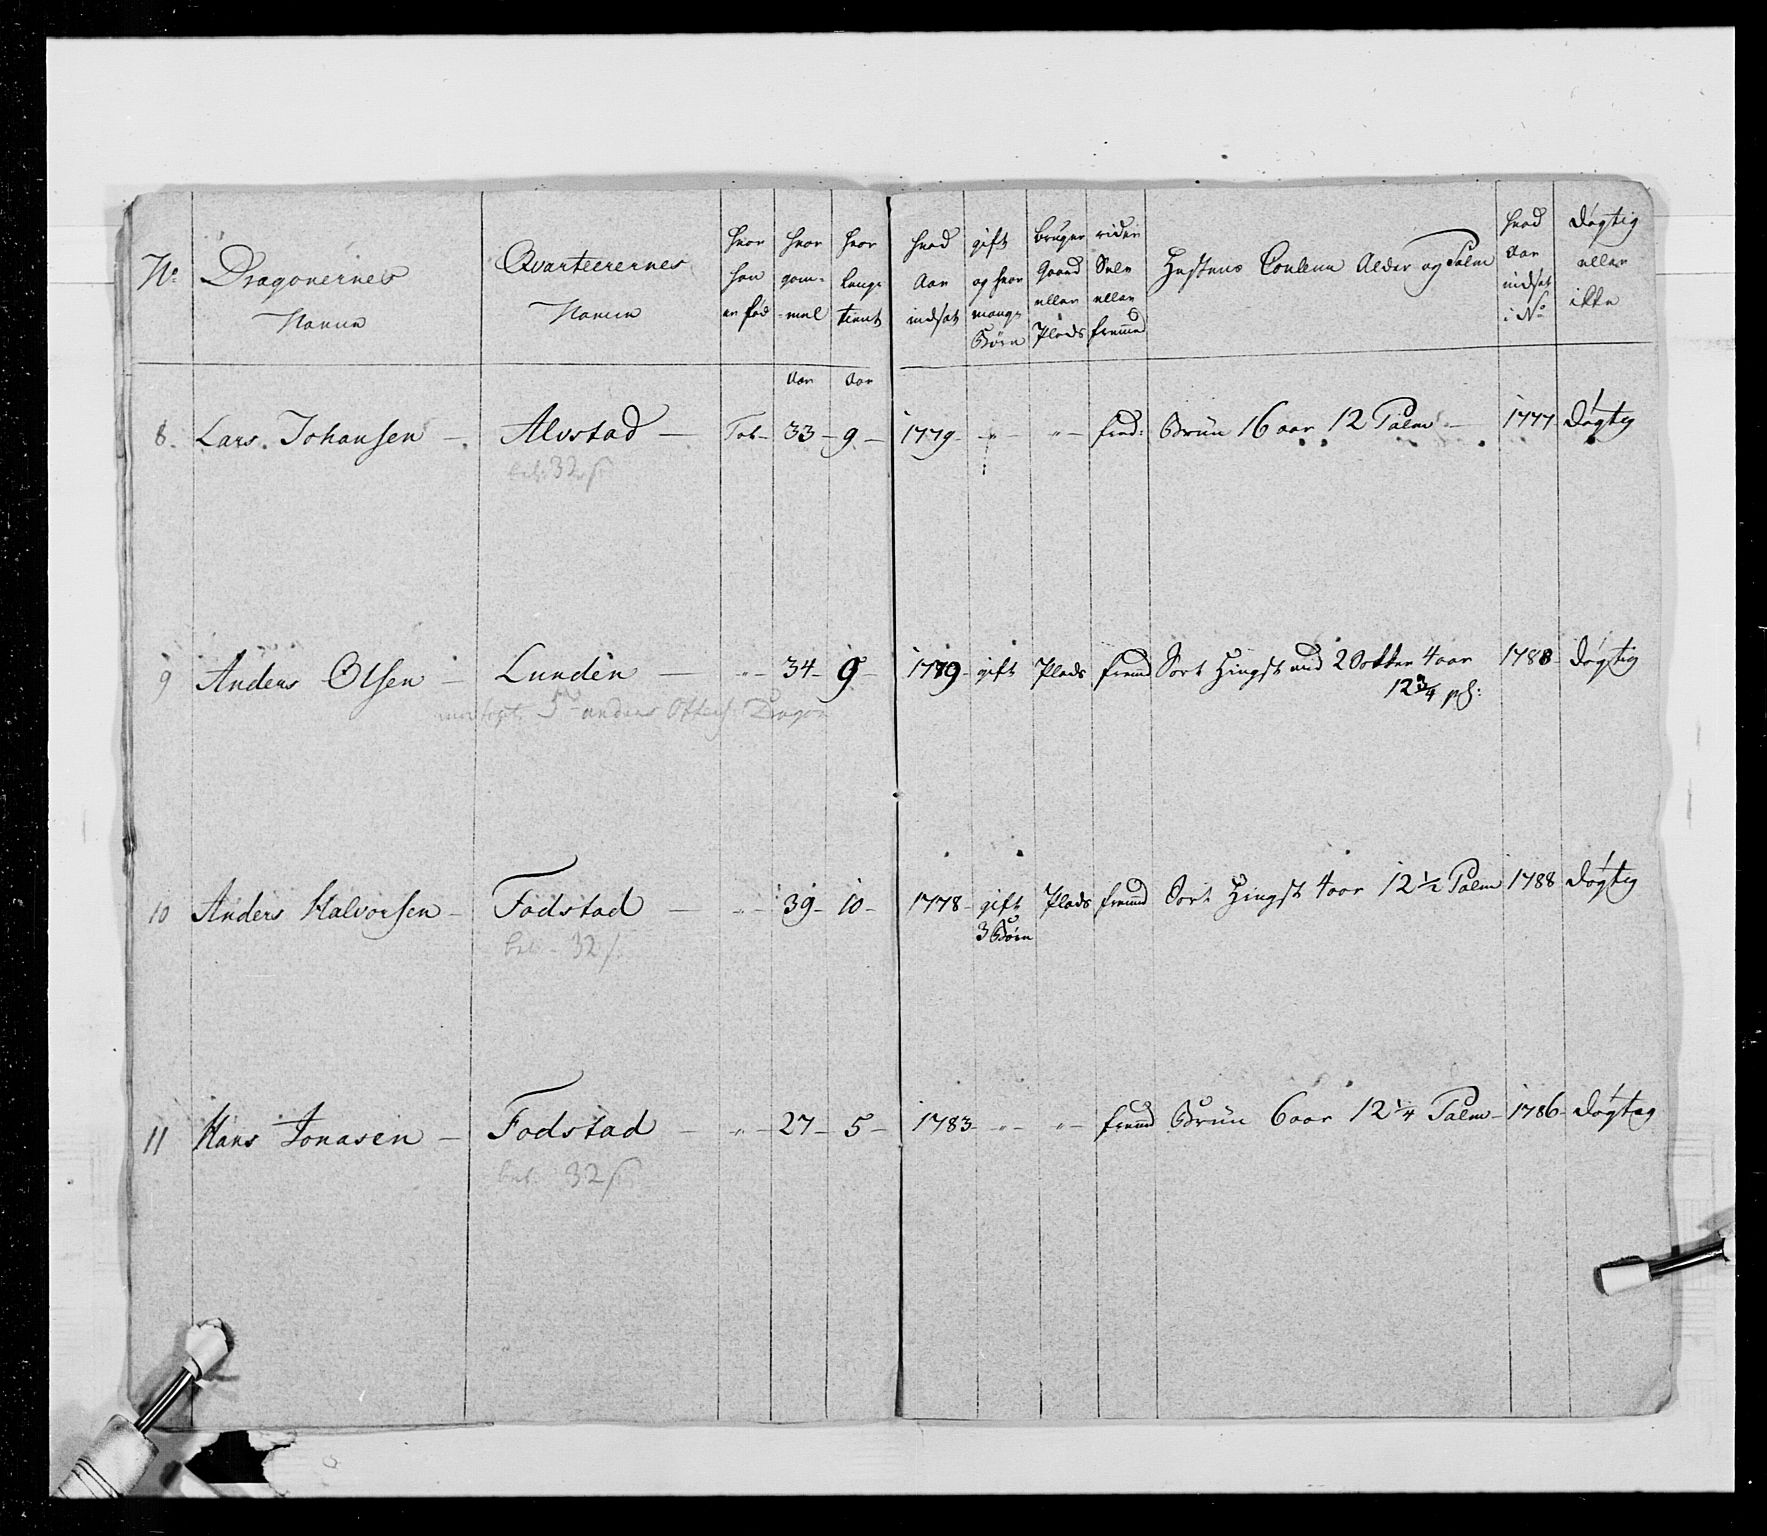 No
Dragonernes
Navne
Qvarteerernes
Navne
hvor
han
er fød
hvor
gam-
mel
hvor
længe
tient
hvad
Aar
indsat
gift
og hvor
mange
Børn
bruger
Gaard
eller
Plads
rider
Selv
eller
fremmed
Hestens Couleur Alder og Palm
hvad
Aar
indsat
i No
døgtig
eller
ikke
Aar Aar
8. Lars Johansen — Alvstad — Tot— 33— 9— 1779— " — " — fred: Brun 16 aar 12 Palm — 1777 døgtig
32 ß
9 Anders Olsen — Lunden — " — 34— 9— 1779— gift Plads fremd Sort Hingst med 2 Sokker 4 aar 1788— døgtig
12 3/4 pl:
Anders Dragon
10 Anders Halvorsen — Fodstad — " — 39— 10— 1778— gift Plads fremmd Sort Hingst 4 aar 12 1/2 Palm 1788 døgtig
3 Børn
bet. 32 ß
11 Hans Jonasen — Fodstad — " — 27— 5— 1783— " — " — fremmd Brun 6 aar 12 1/4 Palm— 1786— døgtig
bet. 32 ß